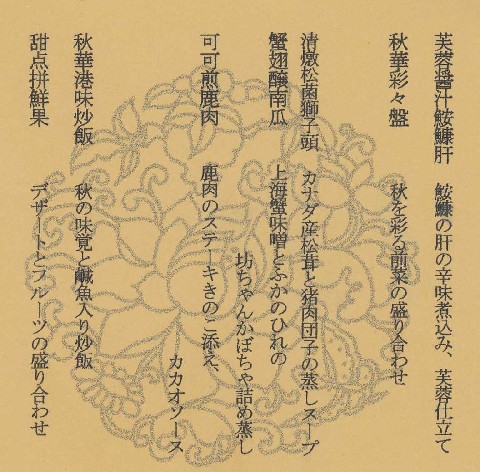 芙蓉醤汁鮟鱇肝 鮟鱇の肝の辛味煮込み、芙蓉仕立て
秋華彩々盤 秋を彩る前菜の盛り合わせ
清燉松茵獅子頭 カナダ産松茸と猪肉団子の蒸しスープ
蟹翅釀南瓜 上海蟹味噌とふかのひれの
坊ちゃんかぼちゃ詰め蒸し
可可煎鹿肉 鹿肉のステーキきのこ添え、
カカオソース
秋華港味炒飯 秋の味覚と鹹魚入り炒飯
甜点拼鮮果 デザートとフルーツの盛り合わせ